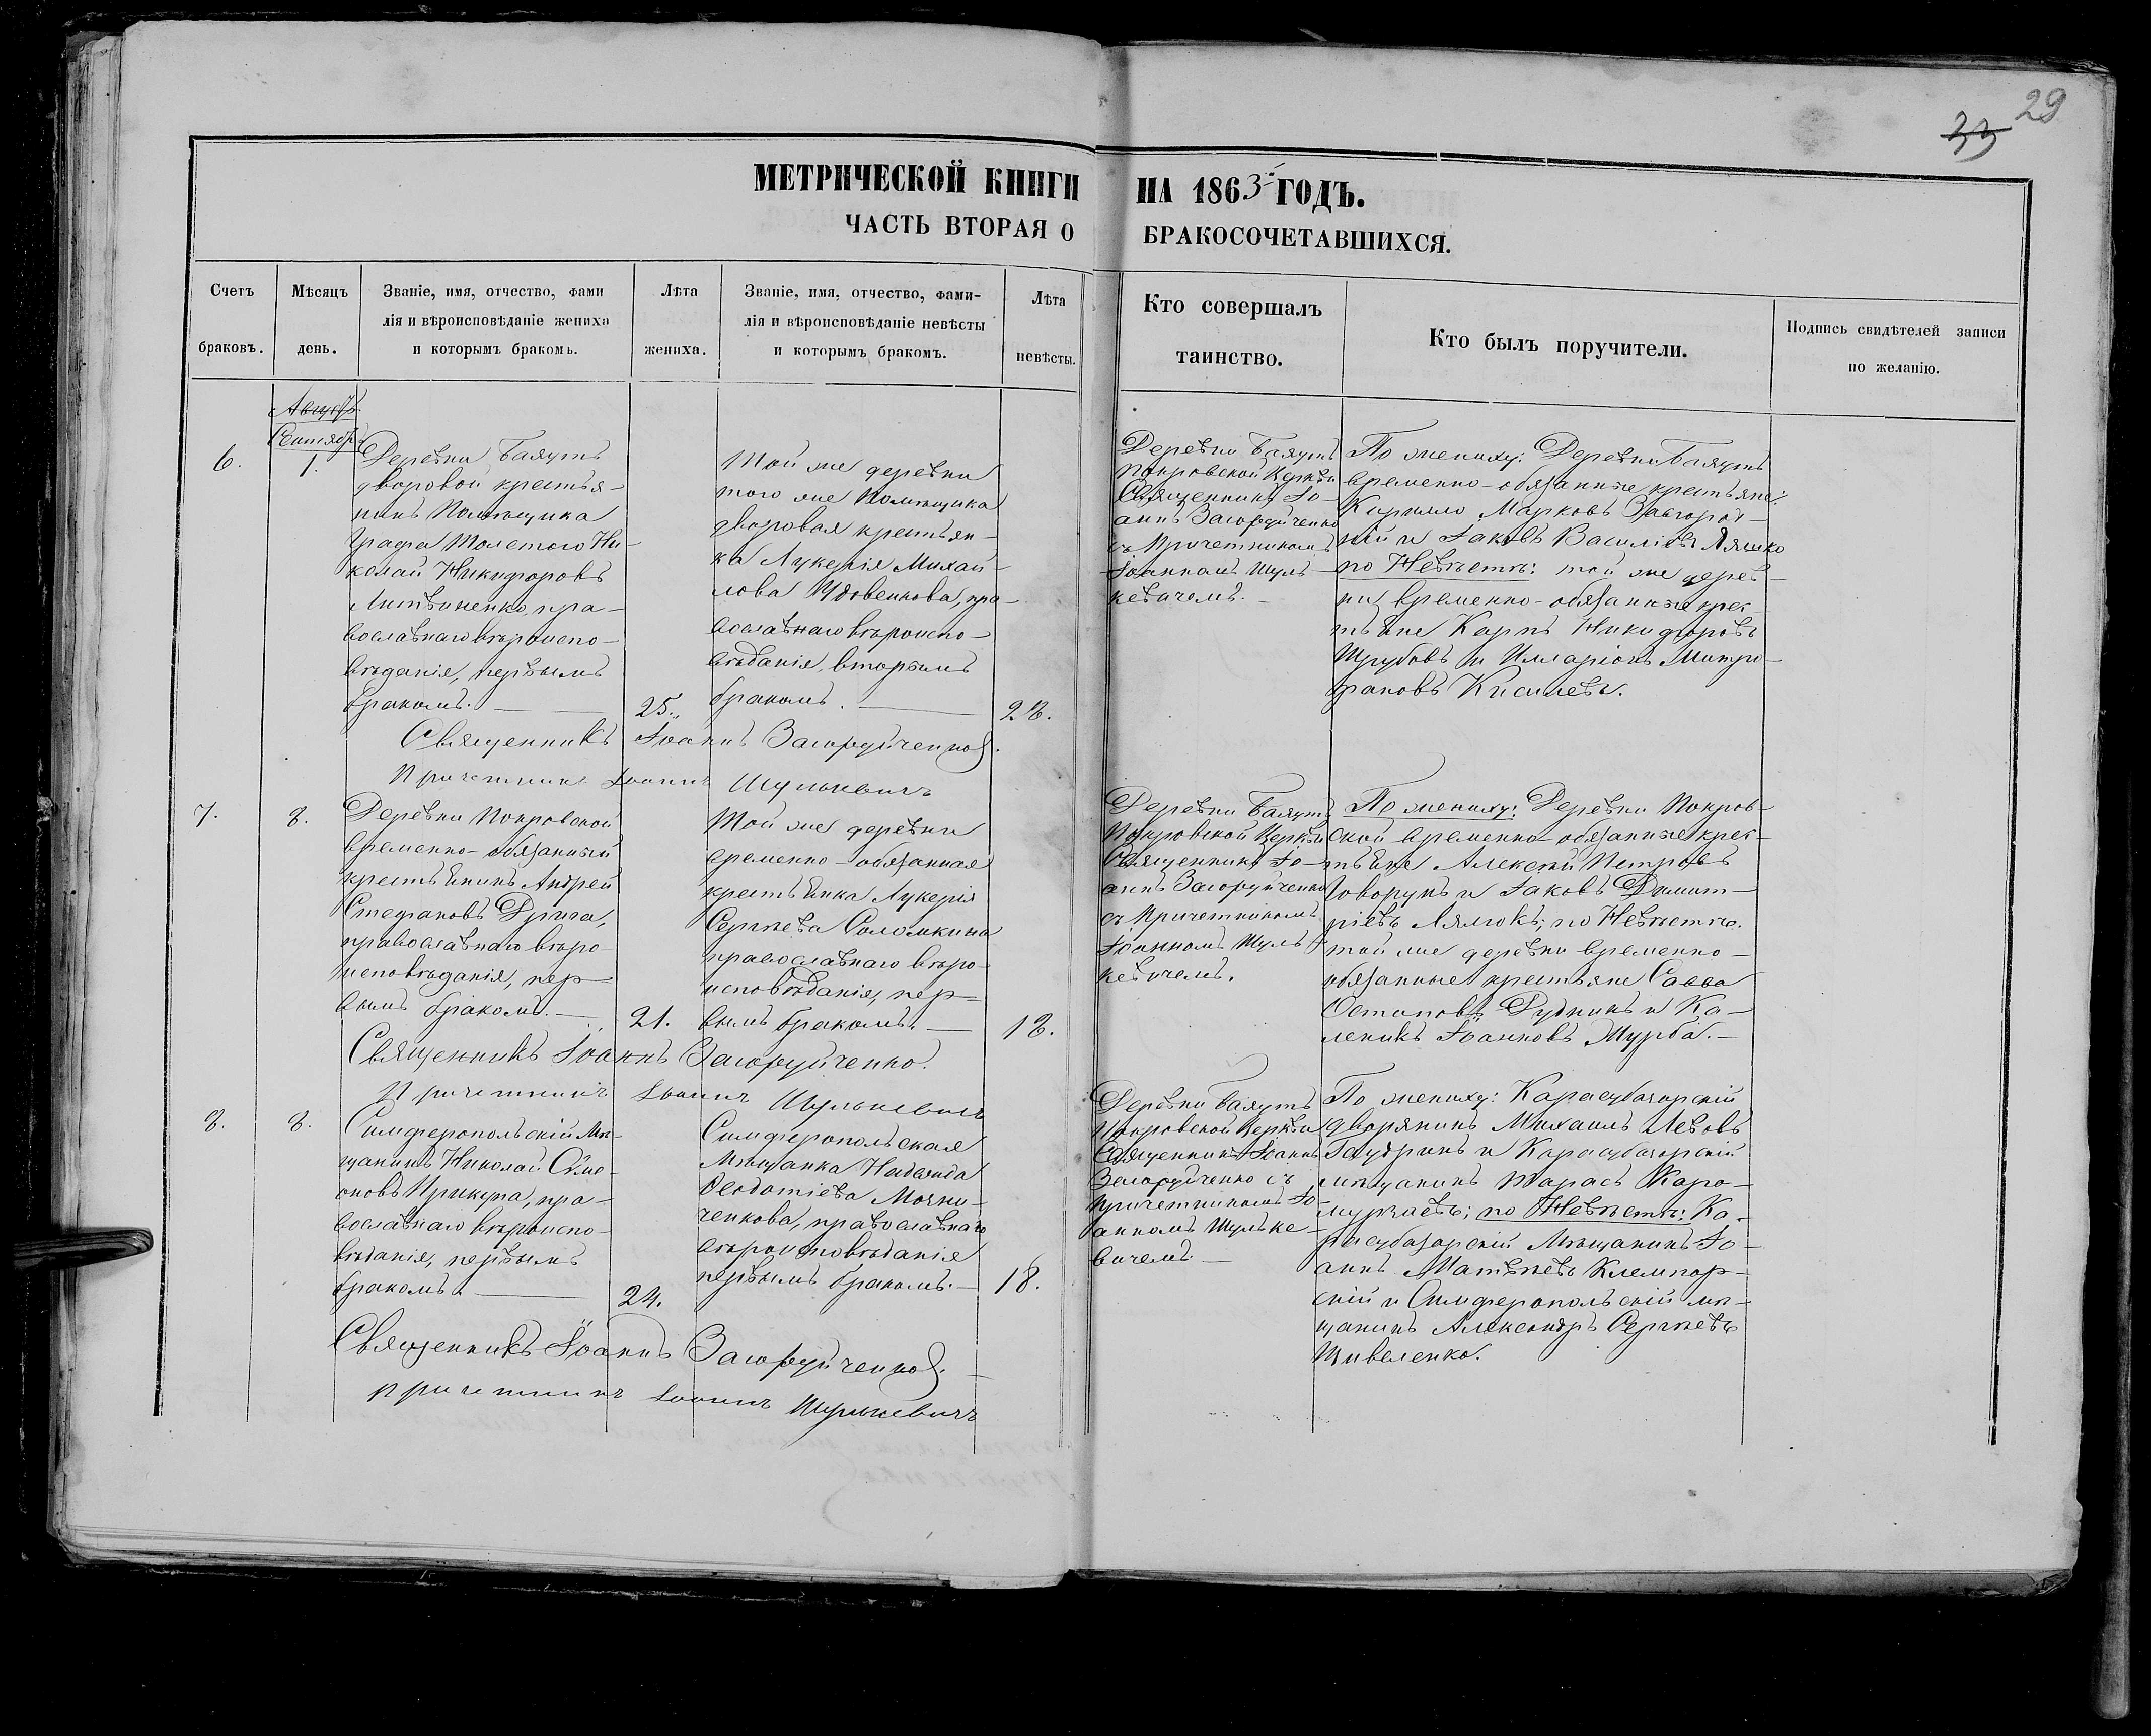 29
33
МЕТРИЧЕСКОЙ КНИГИ НА 1863 ГОДЪ.
ЧАСТЬ ВТОРАЯ О БРАКОСОЧЕТАВШИХСЯ.
Счетъ
браковъ.
Мѣсяцъ
день.
Званіе, имя, отчество, фами
лія и вѣроисповѣданіе жениха
и которымъ бракомъ.
Лѣта
жениха.
Званіе, имя, отчество, фами-
лія и вѣроисповѣданіе невѣсты
и которымъ бракомъ.
Лѣта
невѣсты.
Кто совершалъ
таинство.
Кто былъ поручители.
Подпись свидѣтелей записи
по желанію.
Августъ
Сентябрь
6.
1.
Деревни Баяутъ
дворовой крестья-
нинъ Помѣщика
Графа Толстого Ни-
колай Никифоровъ
Литвиненко, пра-
вославнаго вѣроиспо-
вѣданія, первымъ
бракомъ.
25.
Той же деревни
того же Помѣщика
дворовая крестьян-
ка Лукерія Михай-
лова Удовенкова, пра-
вославнаго вѣроиспо-
вѣданія, вторымъ
бракомъ.
28.
Деревни Баяутъ
Покровской Церкви
Священникъ Іо-
аннъ Загоруйченко
съ Причетникомъ
Іоанномъ Шуль-
кевичемъ.
По жениху: Деревни Баяутъ
временно-обязанные крестьяне:
Кирилло Марковъ Завгород-
ній и Іаковъ Василіевъ Ляшко
по Невѣстѣ: той же дерев-
ни временно-обязанные крес-
тьяне Карпъ Никифоровъ
Шрубовъ и Илларіонъ Митро-
фановъ Киселевъ.
Священникъ Іоаннъ Загоруйченко.
Причетникъ Іоаннъ Шулькевичъ
7.
8.
Деревни Покровской
временно-обязанный
крестьянинъ Андрей
Стефановъ Дрига,
православнаго вѣро-
исповѣданія, пер-
вымъ бракомъ.
21.
Той же деревни
временно-обязанная
крестьянка Лукерія
Сергѣева Соломкина
православнаго вѣро-
исповѣданія, пер-
вымъ бракомъ.
18.
Деревни Баяутъ
Покровской Церкви
Священникъ Іо-
аннъ Загоруйченко
съ Причетникомъ
Іоанномъ Шуль-
кевичемъ.
По жениху: Деревни Покров-
ской временно-обязанные крес-
тьяне Алексѣй Петровъ
Говорунъ и Іаковъ Димит-
ріевъ Лялюкъ; по Невѣстѣ.
той же деревни временно-
обязанные крестьяне Савва
Остаповъ Дудникъ и Ка-
леникъ Іоанновъ Шурба.
Священникъ Іоаннъ Загоруйченко.
Причетникъ Іоаннъ Шулькевичъ
8.
8.
Симферопольскій Мѣ-
щанинъ Николай Симе-
оновъ Прикупа, пра-
вославнаго вѣроиспо-
вѣданія, первымъ
бракомъ.
24.
Симферопольская
Мѣщанка Надежда
Ѳеодотіева Моχни-
ченкова, православнаго
вѣроисповѣданія
первымъ бракомъ.
18.
Деревни Баяутъ
Покровской Церкви
Священникъ Іоаннъ
Загоруйченко съ
Причетникомъ Іо-
анномъ Шульке-
вичемъ.
По жениху: Карасубазарскій
дворянинъ Михаилъ Львовъ
и Карасубазарскій
мѣщанинъ Тарасъ Каро-
мурзаевъ; по Невѣстѣ: Ка-
расубазарскій Мѣщанинъ Іо-
аннъ Матвѣевъ Клемпор-
скій и Симферопольскій мѣ-
щанинъ Александръ Сергѣевъ
Шивеленко.
Священникъ Іоаннъ Загоруйченко.
Причетникъ Іоаннъ Шулькевичъ